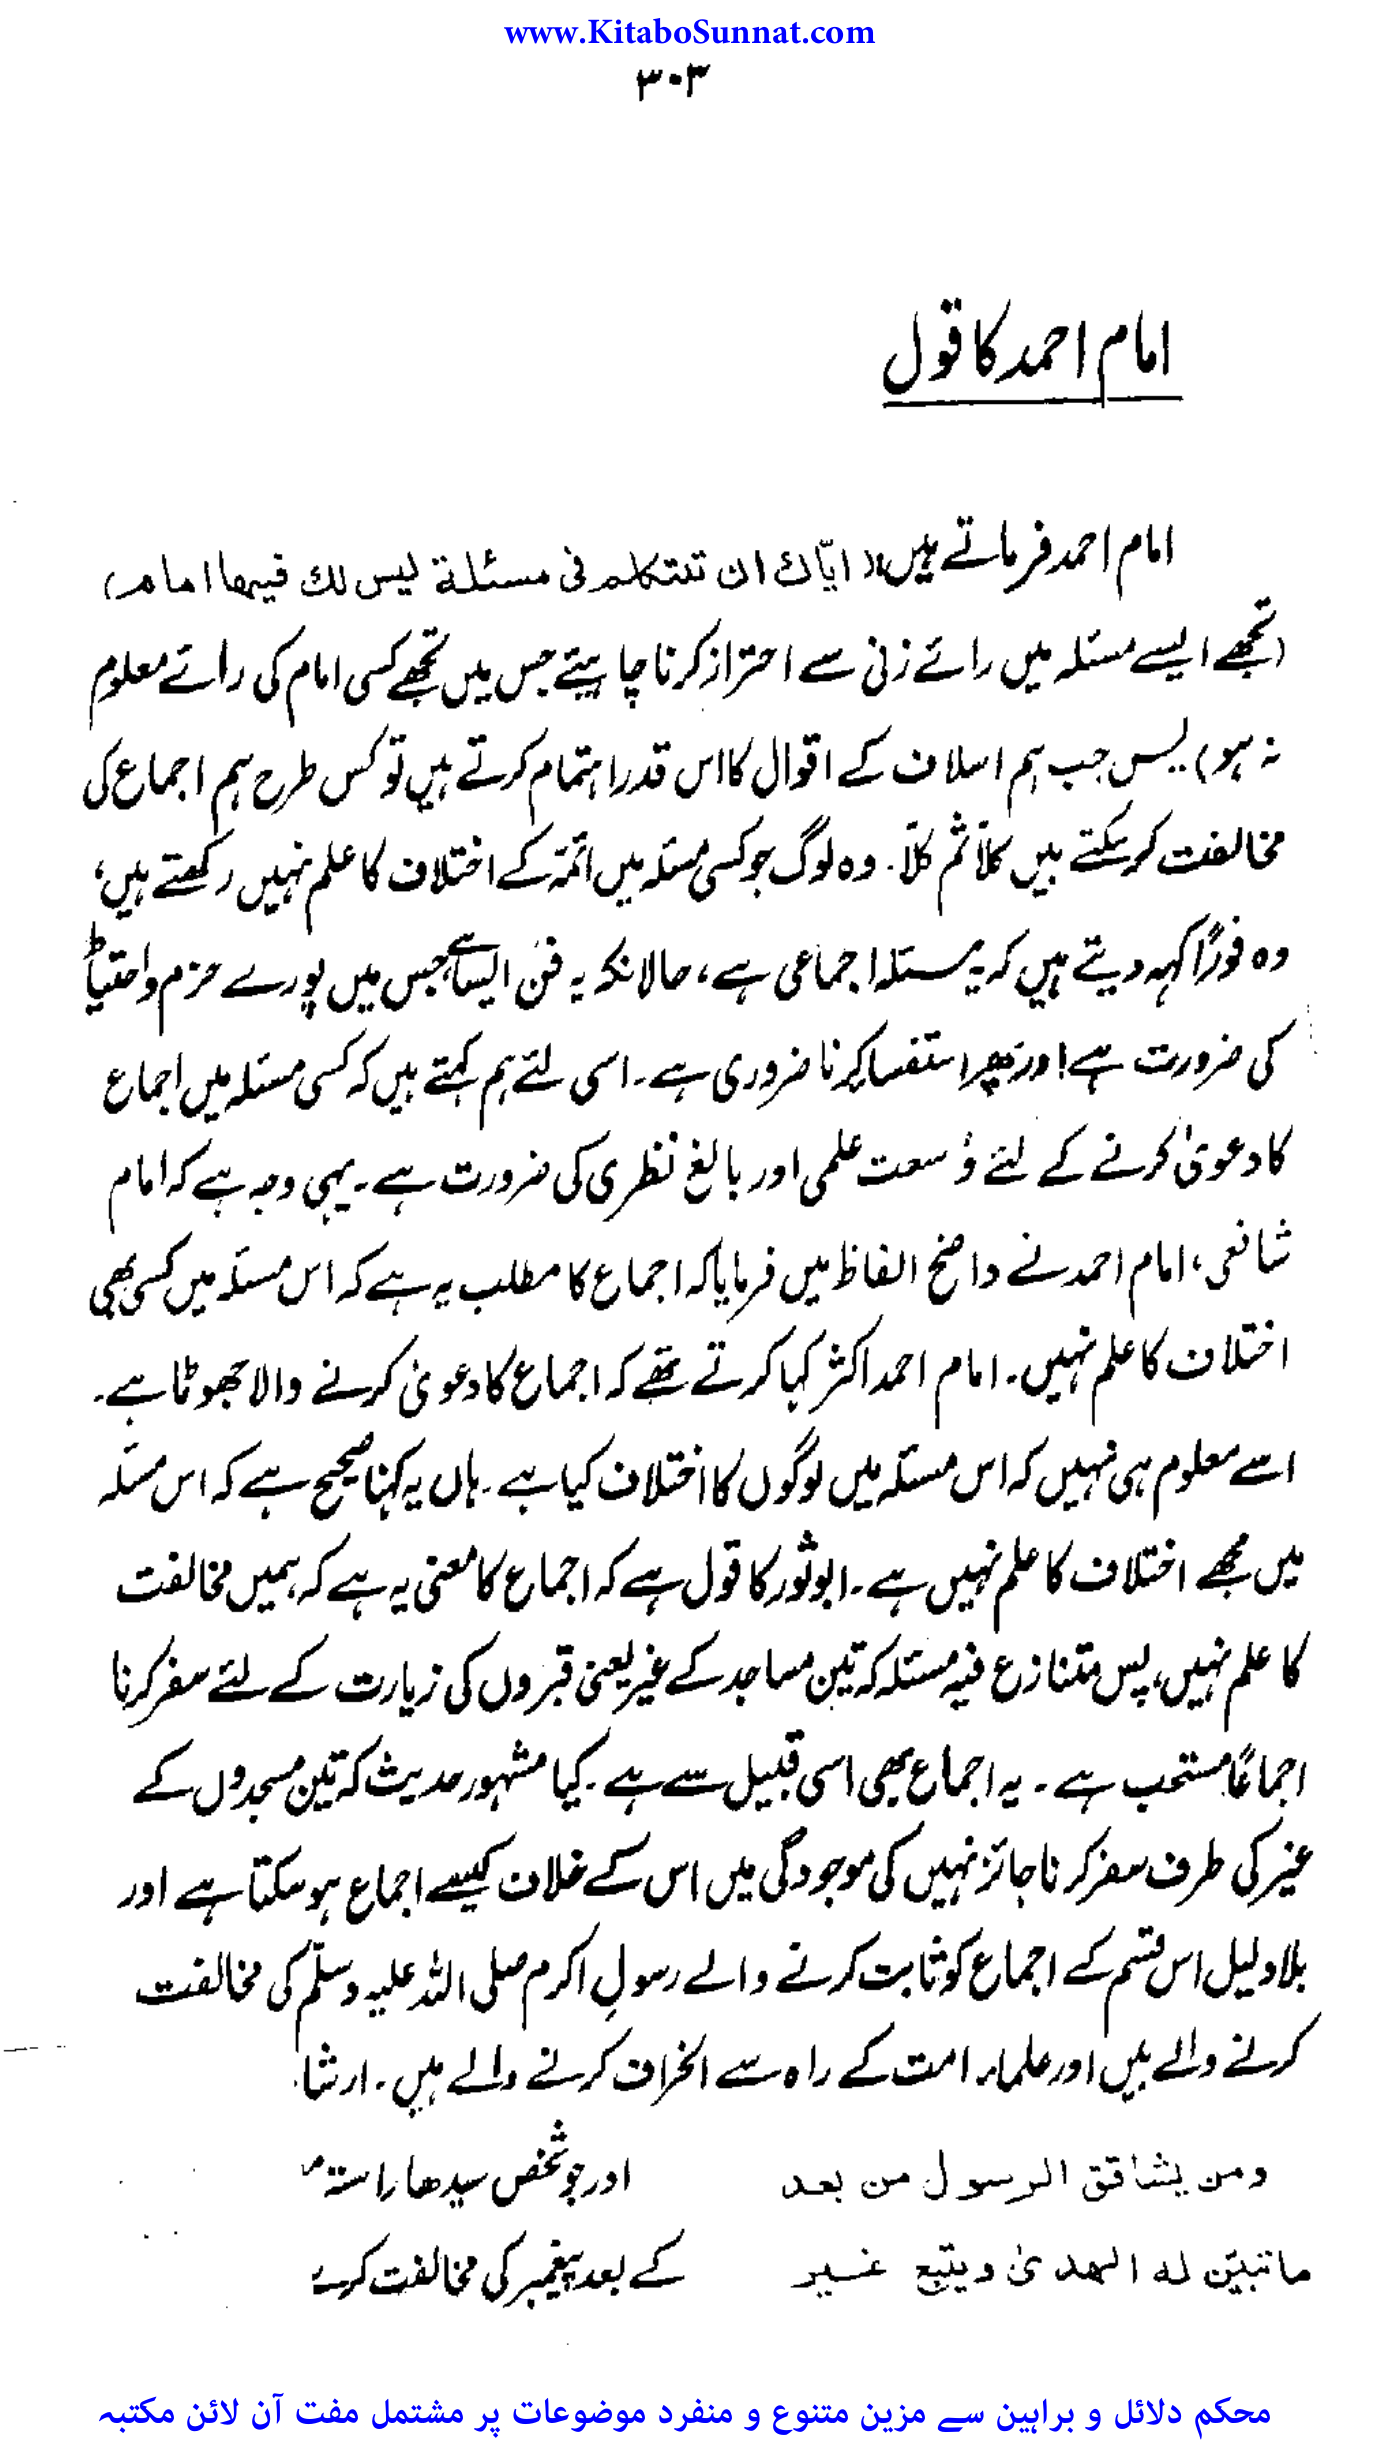 www.KitaboSunnat.com
۳۰۳
امام احمد کا قول
امام احمد فرماتے ہیں (ایّاك ان تتكلم فی مسئلة لیس لك فیها امام)
(تجھے ایسے مسئلہ میں رائے زنی سے احتراز کرنا چاہیئے جس میں تجھے کسی امام کی رائے معلوم
نہ ہو) پس جب ہم اسلاف کے اقوال کا اس قدر اہتمام کرتے ہیں تو کس طرح ہم اجماع کی
مخالفت کر سکتے ہیں کلّا ثم کلّا۔ وہ لوگ جو کسی مسئلہ میں ائمہ کے اختلاف کا علم نہیں رکھتے ہیں،
وہ فوراً کہہ دیتے ہیں کہ یہ مسئلہ اجماعی ہے، حالانکہ یہ فن ایسا ہے جس میں پورے حزم و احتیاط
کی ضرورت ہے اور پھر استفسار کرنا ضروری ہے۔ اسی لئے ہم کہتے ہیں کہ کسی مسئلہ میں اجماع
کا دعویٰ کرنے کے لئے وُسعت علمی اور بالغ نظری کی ضرورت ہے۔ یہی وجہ ہے کہ امام
شافعی، امام احمد نے واضح الفاظ میں فرمایا کہ اجماع کا مطلب یہ ہے کہ اس مسئلہ میں کسی بھی
اختلاف کا علم نہیں۔ امام احمد اکثر کہا کرتے تھے کہ اجماع کا دعویٰ کرنے والا جھوٹا ہے۔
اسے معلوم ہی نہیں کہ اس مسئلہ میں لوگوں کا اختلاف کیا ہے۔ ہاں یہ کہنا صحیح ہے کہ اس مسئلہ
میں مجھے اختلاف کا علم نہیں ہے۔ ابوثور کا قول ہے کہ اجماع کا معنی یہ ہے کہ ہمیں مخالفت
کا علم نہیں، پس متنازع فیہ مسئلہ کہ تین مساجد کے غیر یعنی قبروں کی زیارت کے لئے سفر کرنا
اجماعاً مستحب ہے۔ یہ اجماع بھی اسی قبیل سے ہے۔ کیا مشہور حدیث کہ تین مسجدوں کے
غیر کی طرف سفر کرنا جائز نہیں کی موجودگی میں اس کے خلاف کیسے اجماع ہو سکتا ہے اور
بلا دلیل اس قسم کے اجماع کو ثابت کرنے والے رسولِ اکرم صلی اللہ علیہ وسلّم کی مخالفت
کرنے والے ہیں اور علماء امت کے راہ سے انحراف کرنے والے ہیں۔ ارشاد
ومن یشاقق الرسول من بعد
اور جو شخص سیدھا راستہ
ما تبیّن له الهدیٰ ویتبع غیر
کے بعد پیغمبر کی مخالفت کرے
محکم دلائل و براہین سے مزین متنوع و منفرد موضوعات پر مشتمل مفت آن لائن مکتبہ